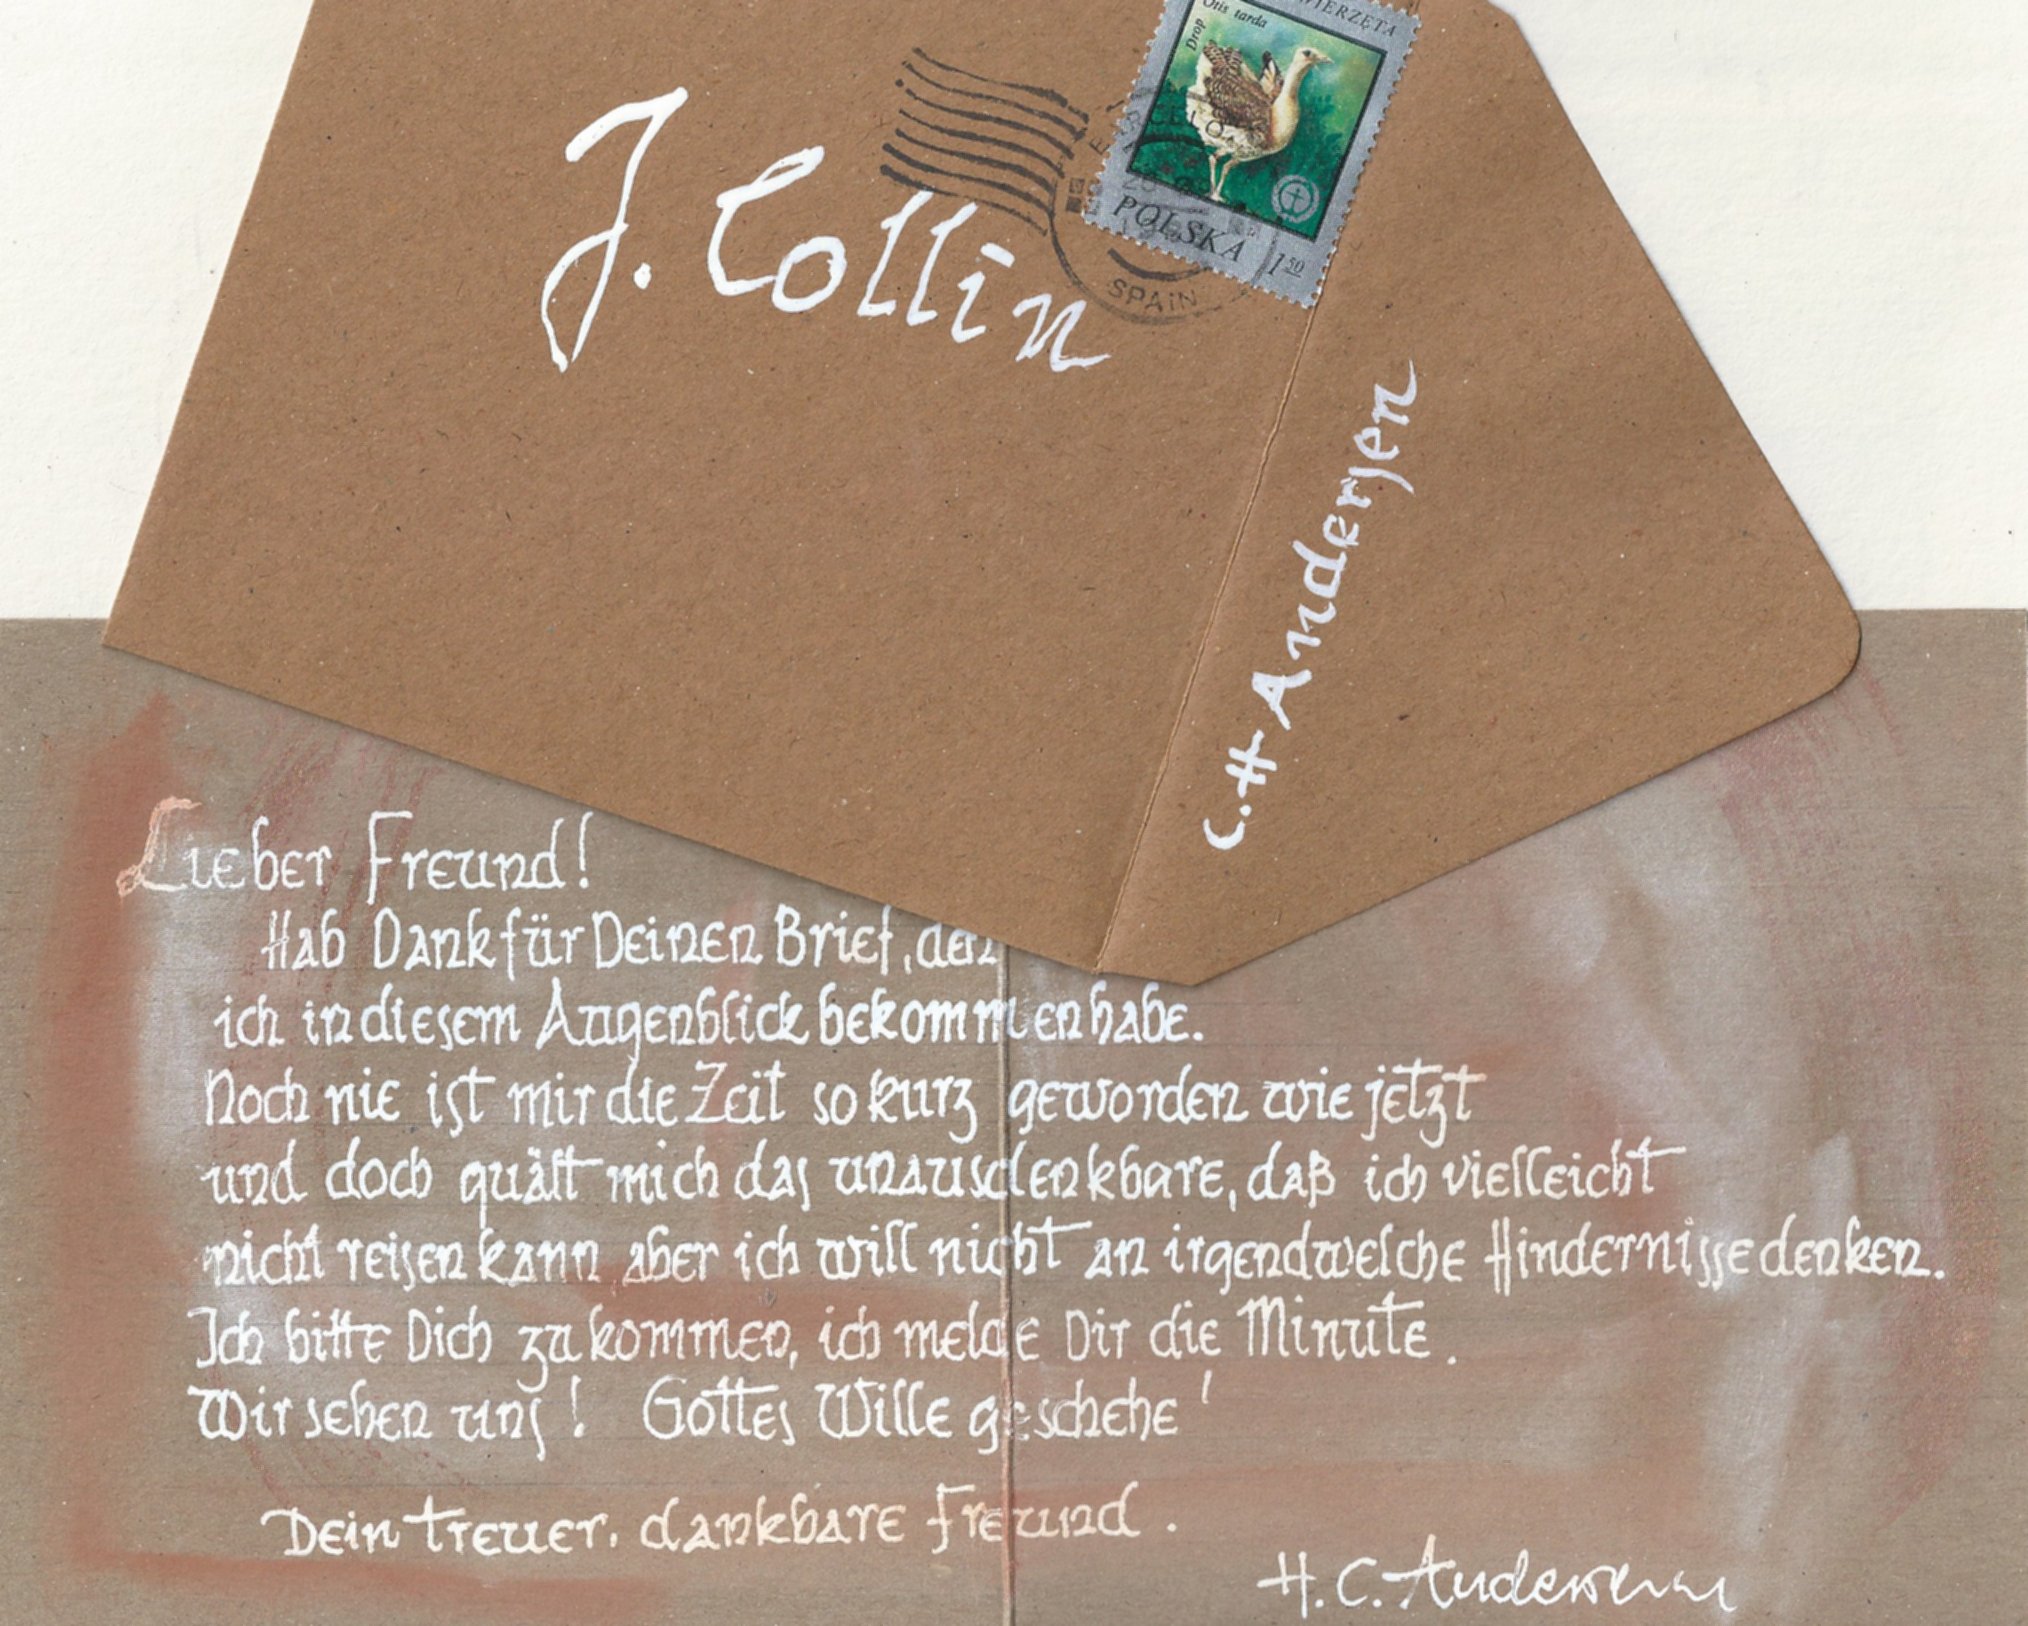 WIERZĘTA
Otis tarda
Drop
POLSKA 1 50
SPAiN
J. Collin
C.H Andersen
Lieber Freund!
Hab Dank für Deinen Brief, den
ich in diesem Augenblick bekommen habe.
Noch nie ist mir die Zeit so kurz geworden wie jetzt
und doch quält mich das unausdenkbare, daß ich vielleicht
nicht reisen kann, aber ich will nicht an irgendwelche Hindernisse denken.
Ich bitte Dich zu kommen, ich melde Dir die Minute.
Wir sehen uns! Gottes Wille geschehe!
Dein treuer, dankbare Freund.
H.C. Andersen